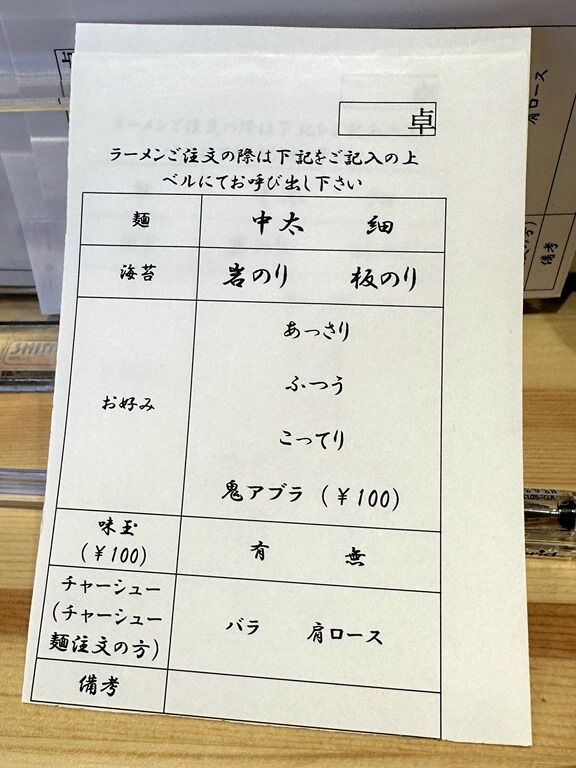 卓
ラーメンご注文の際は下記をご記入の上
ベルにてお呼び出し下さい
麺 中太 細
海苔 岩のり 板のり
お好み
あっさり
ふつう
こってり
鬼アブラ (￥100)
味玉
(￥100)
有 無
チャーシュー
(チャーシュー
麺注文の方)
バラ 肩ロース
備考
肩ロース
備考